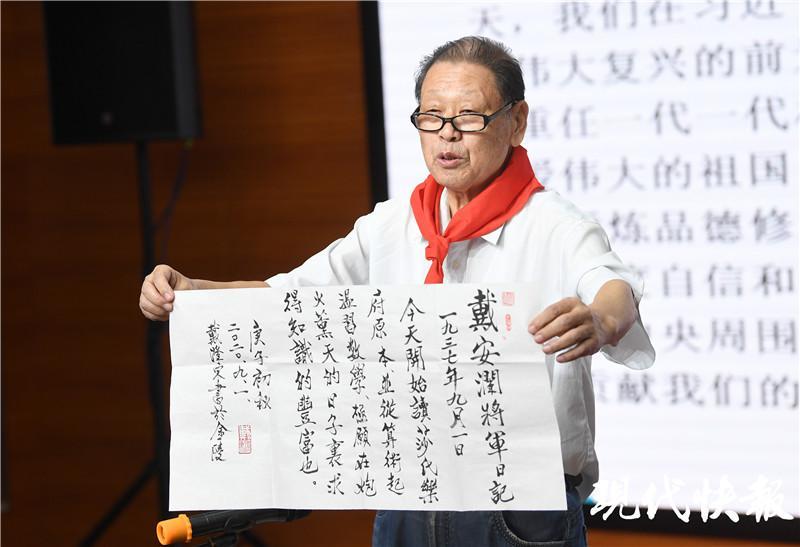 天，我们在习近
伟大复兴的前
重任一代一代
伟大的祖国
炼品德修
自信和
央周围
献我们的
戴安瀾將軍日記
一九三七年九月一日
今天開始讀莎氏樂
府原本並從算術起
溫習數學、極願在炮
火薰天的日子裏求
得知識的豐富也。
庚子初秋
二〇二〇.九.一
戴澄東書於金陵
现代快报